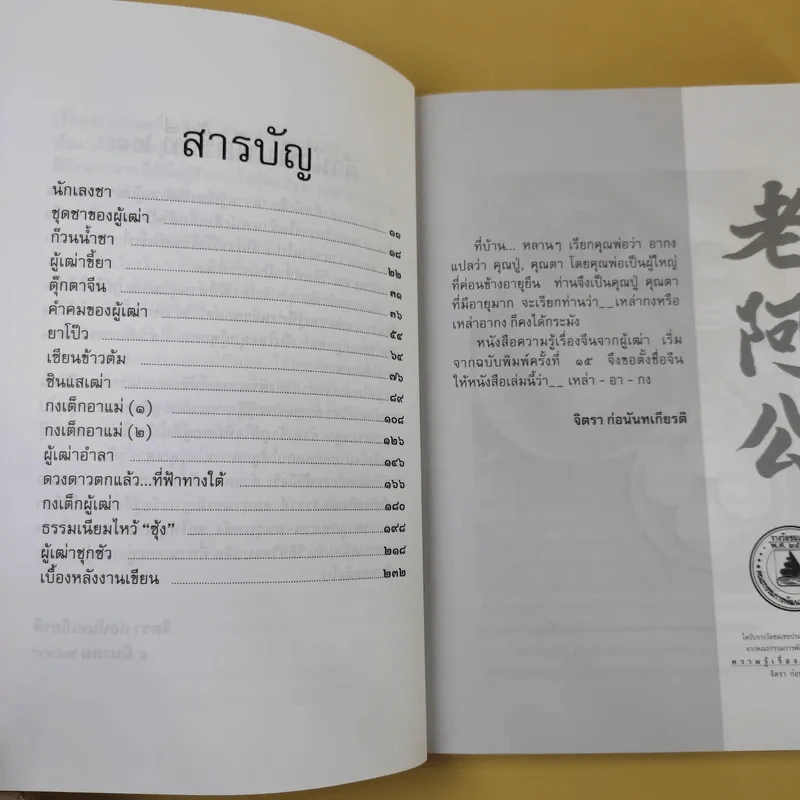 สารบัญ
นักเลงชา ๑๑
ชุดชาของผู้เฒ่า ๑๘
ก๊วนน้ำชา ๒๒
ผู้เฒ่าขี้ยา ๓๑
ตุ๊กตาจีน ๓๖
คำคมของผู้เฒ่า ๕๔
ยาโป๊ว ๖๔
เซียนข้าวต้ม ๗๖
ซินแสเฒ่า ๘๙
กงเต็กอาแม่ (๑) ๑๐๘
กงเต็กอาแม่ (๒) ๑๒๖
ผู้เฒ่าอำลา ๑๔๖
ดวงดาวตกแล้ว...ที่ฟ้าทางใต้ ๑๖๖
กงเต็กผู้เฒ่า ๑๘๐
ธรรมเนียมไหว้ “ซุ้ง” ๑๙๘
ผู้เฒ่าชุกชัว ๒๑๘
เบื้องหลังงานเขียน ๒๓๒
ที่บ้าน... หลานๆ เรียกคุณพ่อว่า อากง
แปลว่า คุณปู่, คุณตา โดยคุณพ่อเป็นผู้ใหญ่
ที่ค่อนข้างอายุยืน ท่านจึงเป็นคุณปู่ คุณตา
ที่มีอายุมาก จะเรียกท่านว่า__เหล่ากงหรือ
เหล่าอากง ก็คงได้กระมัง
หนังสือความรู้เรื่องจีนจากผู้เฒ่า เริ่ม
จากฉบับพิมพ์ครั้งที่ ๑๕ จึงขอตั้งชื่อจีน
ให้หนังสือเล่มนี้ว่า__ เหล่า - อา - กง
จิตรา ก่อนันทเกียรติ
老
阿
公
รางวัลชม
พ.ศ. ๒๕
ได้รับรางวัลชมเชยประ
จากคณะกรรมการพัฒ
ความรู้เรื่อง
จิตรา ก่อน